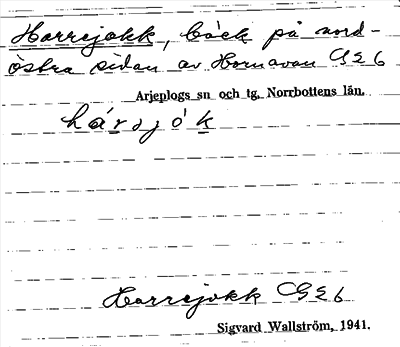 Harrejokk, bäck på nord-
östra sidan av Hornavan G2L6
Arjeplogs sn och tg, Norrbottens län.
hárjók
Harrejokk
Sigvard Wallström, 1941.